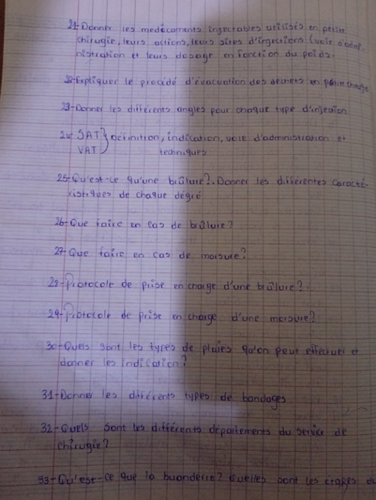 21-Donner les medicaments injectables utilisés en petite
chirugie, leurs actions, leurs sites d'injections (voie d'admi-
nistration et leurs dosage en fonction du poids.
22-Expliquer le procédé d'évacuation des déchets en petite chirugie
23-Donner les différents angles pour chaque type d'injection
24- SAT } définition, indication, voie d'administration et
VAT techniques
25-Qu'est-ce qu'une brûlure? Donner les différentes caracté-
ristiques de chaque dégré
26-Que faire en cas de brûlure?
27-Que faire en cas de morsure?
28-Protocole de prise en charge d'une brûlure?
29-Protocole de prise en charge d'une morsure?
30-Quels sont les types de plaies qu'on peut effectuer et
donner les indication?
31-Donner les différents types de bandages
32-Quels sont les différents départements du service de
chirugie?
33-Qu'est-ce que la buanderie? Quelles sont les étapes